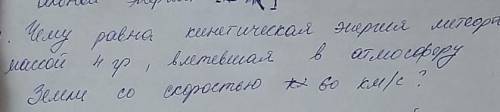 Чему равна кинетическая энергия метеора
массой 4 гр, влетевшая в атмосферу
Земли со скоростью 60 км/с?